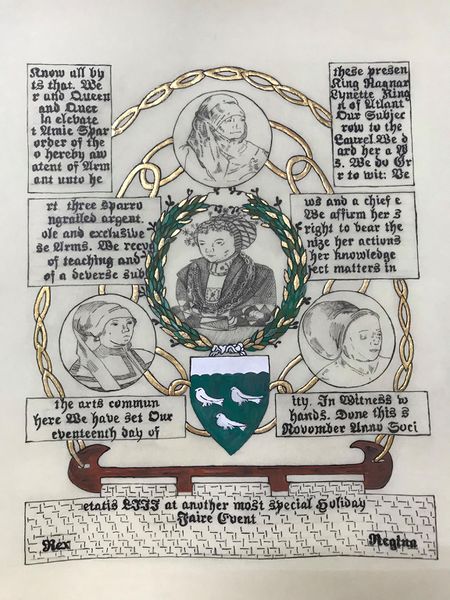 Know all by these presen
ts that. We King Ragnar
r and Queen Lynette King
and Quee n of Atlant
ia elevate Our Subjec
t Amie Spar row to the
order of the Laurel We d
o hereby aw ard her a P
atent of Arm s. We do Gr
ant unto he r to wit: Ve
rt three sparro ws and a chief e
ngrailed argent We affirm her s
ole and exclusive right to bear the
se Arms. We recog nize her actions
of teaching and her knowledge
of a deverse sub ject matters in
the arts commun ity. In Witness w
here We have set Our hands. Done this s
eventeenth day of November Anno Soci
etatis LIII at another most special Holiday
Faire Event
Rex Regina